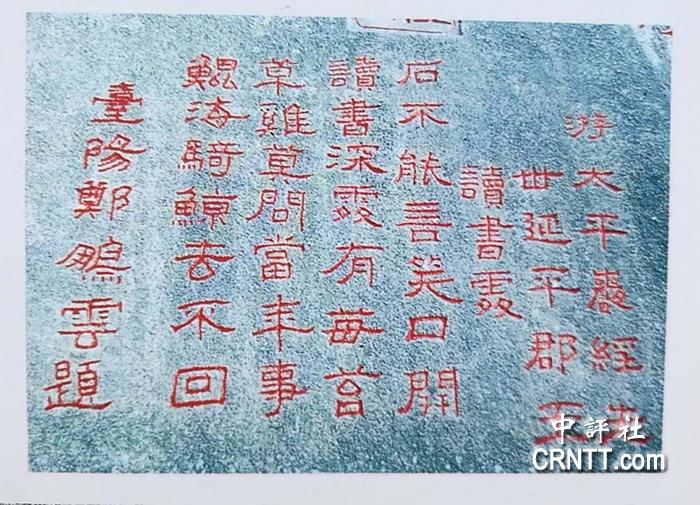 游太平巖經先
世延平郡王
讀書處
石不能善笑口開
讀書深處有苺苔
草雞莫問當年事
鯤海騎鯨去不回
臺陽鄭鵬雲題
中評社
CRNTT.com